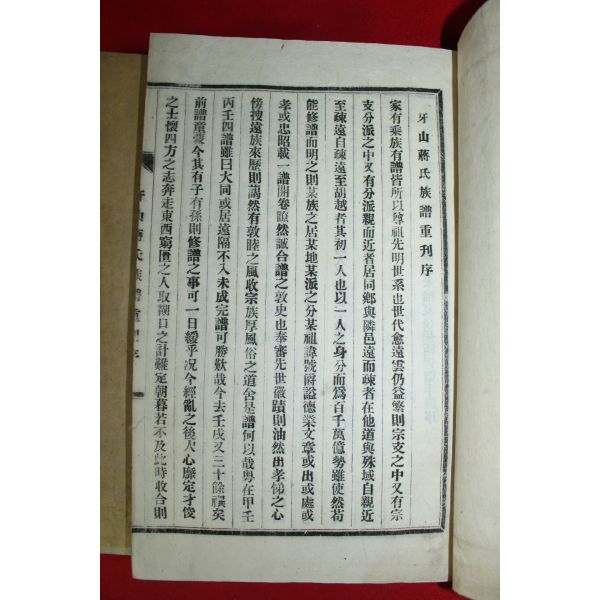 牙山蔣氏族譜重刊序
家有乘族有譜皆所以尊祖先明世系也世代愈遠雲仍益繁則宗支之中又有宗
支分派之中又有分派親而近者居同鄉與隣邑遠而疎者在他道與殊域自親近
至疎遠自疎遠至胡越者其初一人也以一人之身分而爲百千萬億勢雖使然苟
能修譜而明之則某族之居某地某派之分某祖諱號爵謚德業文章或出或處或
孝或忠昭載一譜開卷瞭然誠合譜之敦史也奉審先世徽蹟則油然出孝悌之心
傍搜遠族來歷則藹然有敦睦之風收宗族厚風俗之道舍是譜何以哉粤在甲壬
丙壬四譜雖曰大同或居遠隔不入未成完譜可勝歎哉今去壬戌又三十餘禩矣
前譜童蒙今其有子有孫則修譜之事可一日緩乎况今經亂之後人心靡定才俊
之士懷四方之志奔走東西窮匱之人取糊口之計難定朝暮若不及此時收合則
牙山蔣氏族譜重刊序